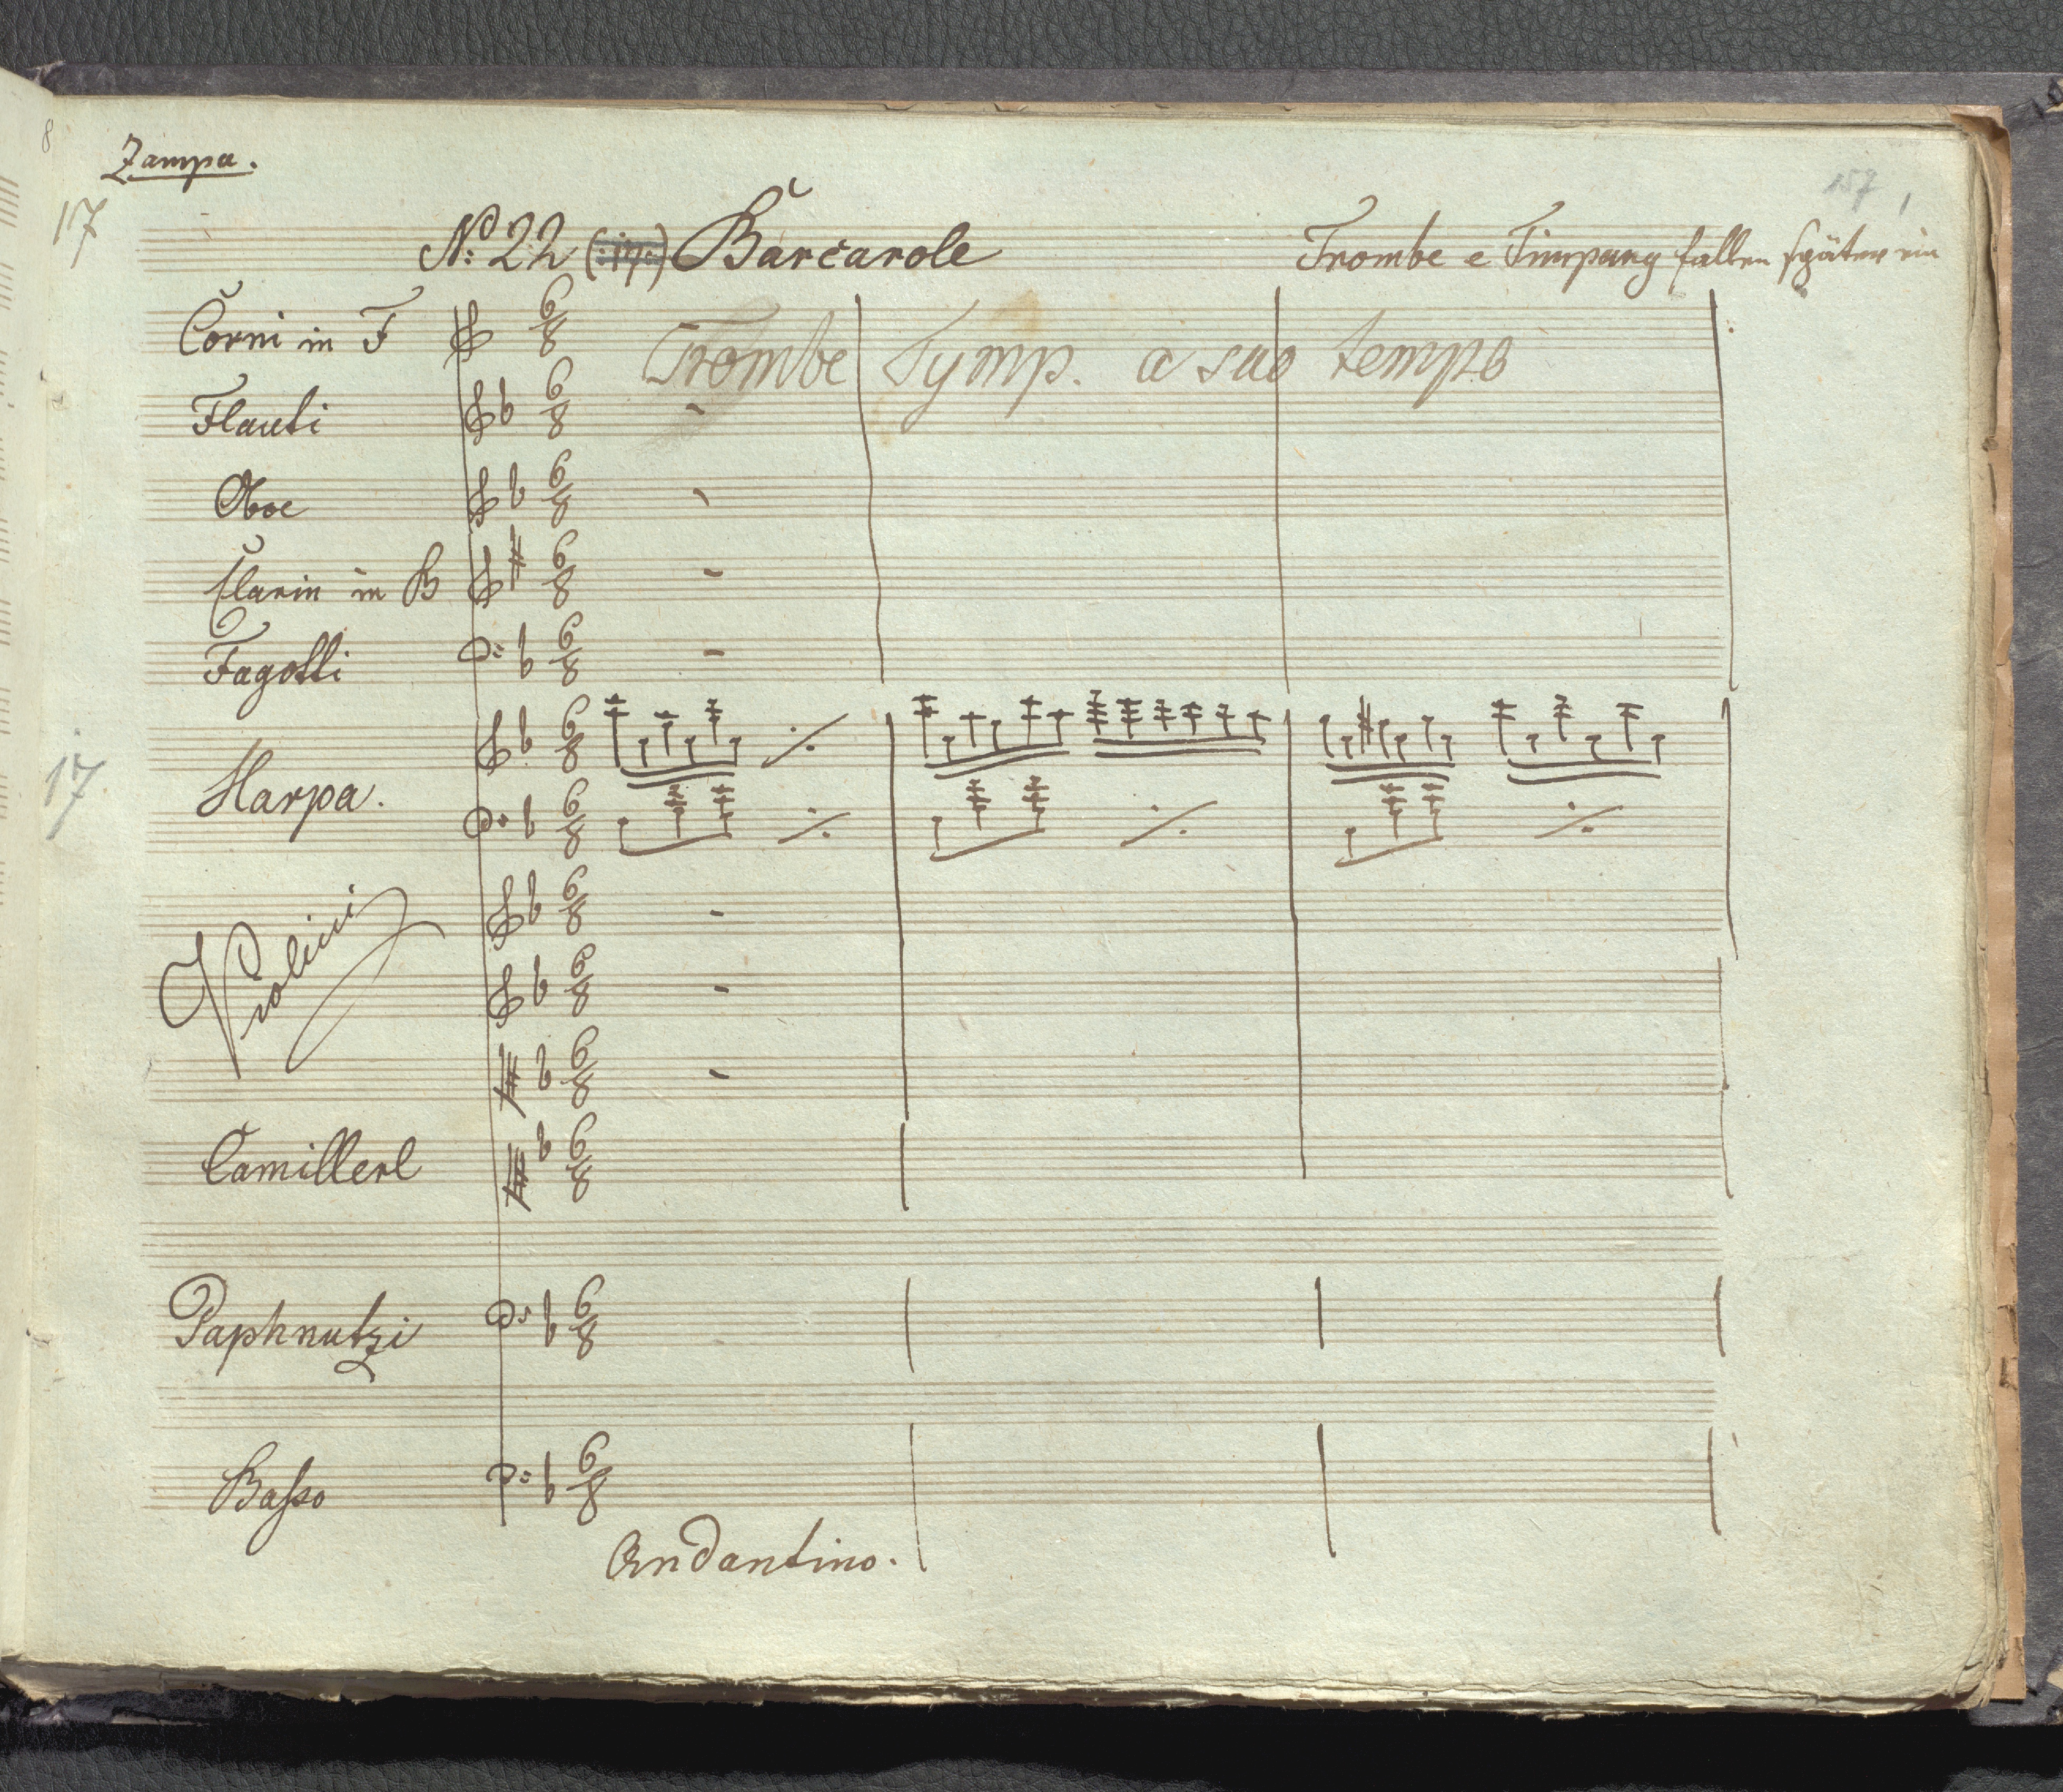 8
Zampa.
157 1
17
No: 22 (:17:) Barcarole
Trombe e Timpany fallen später ein
Corni in F 6/8
Trombe Tymp. a suo tempo
Flauti 6/8
Oboe 6/8
Clarin in B 6/8
Fagotti 6/8
6/8
17
Harpa. 6/8
6/8
Violini 6/8
6/8
Camillerl 6/8
Paphnutzi 6/8
Basso 6/8
Andantino.